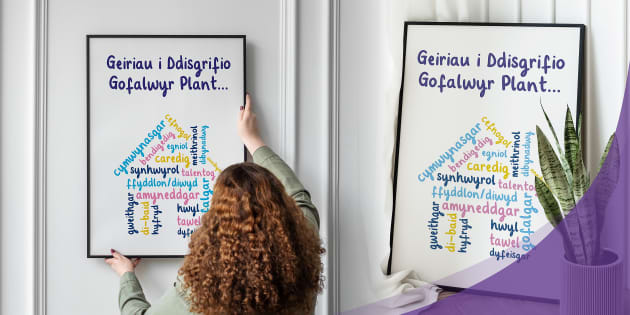 Geiriau i Ddisgrifio
Gofalwyr Plant...
cefnogol
cymwynasgar
bendigedig
egniol
meithrinol
dibynadwy
caredig
synhwyrol
talentog
ffyddlon/diwyd
amyneddgar
gweithgar
di-baid
hyfryd
hwyl
tawel
Geiriau i Ddisgrifio
Gofalwyr Plant...
cefnogol
cymwynasgar
bendigedig
egniol
meithrinol
dibynadwy
caredig
synhwyrol
talentog
ffyddlon/diwyd
amyneddgar
gofalgar
gweithgar
di-baid
hyfryd
hwyl
tawel
dyfeisgar